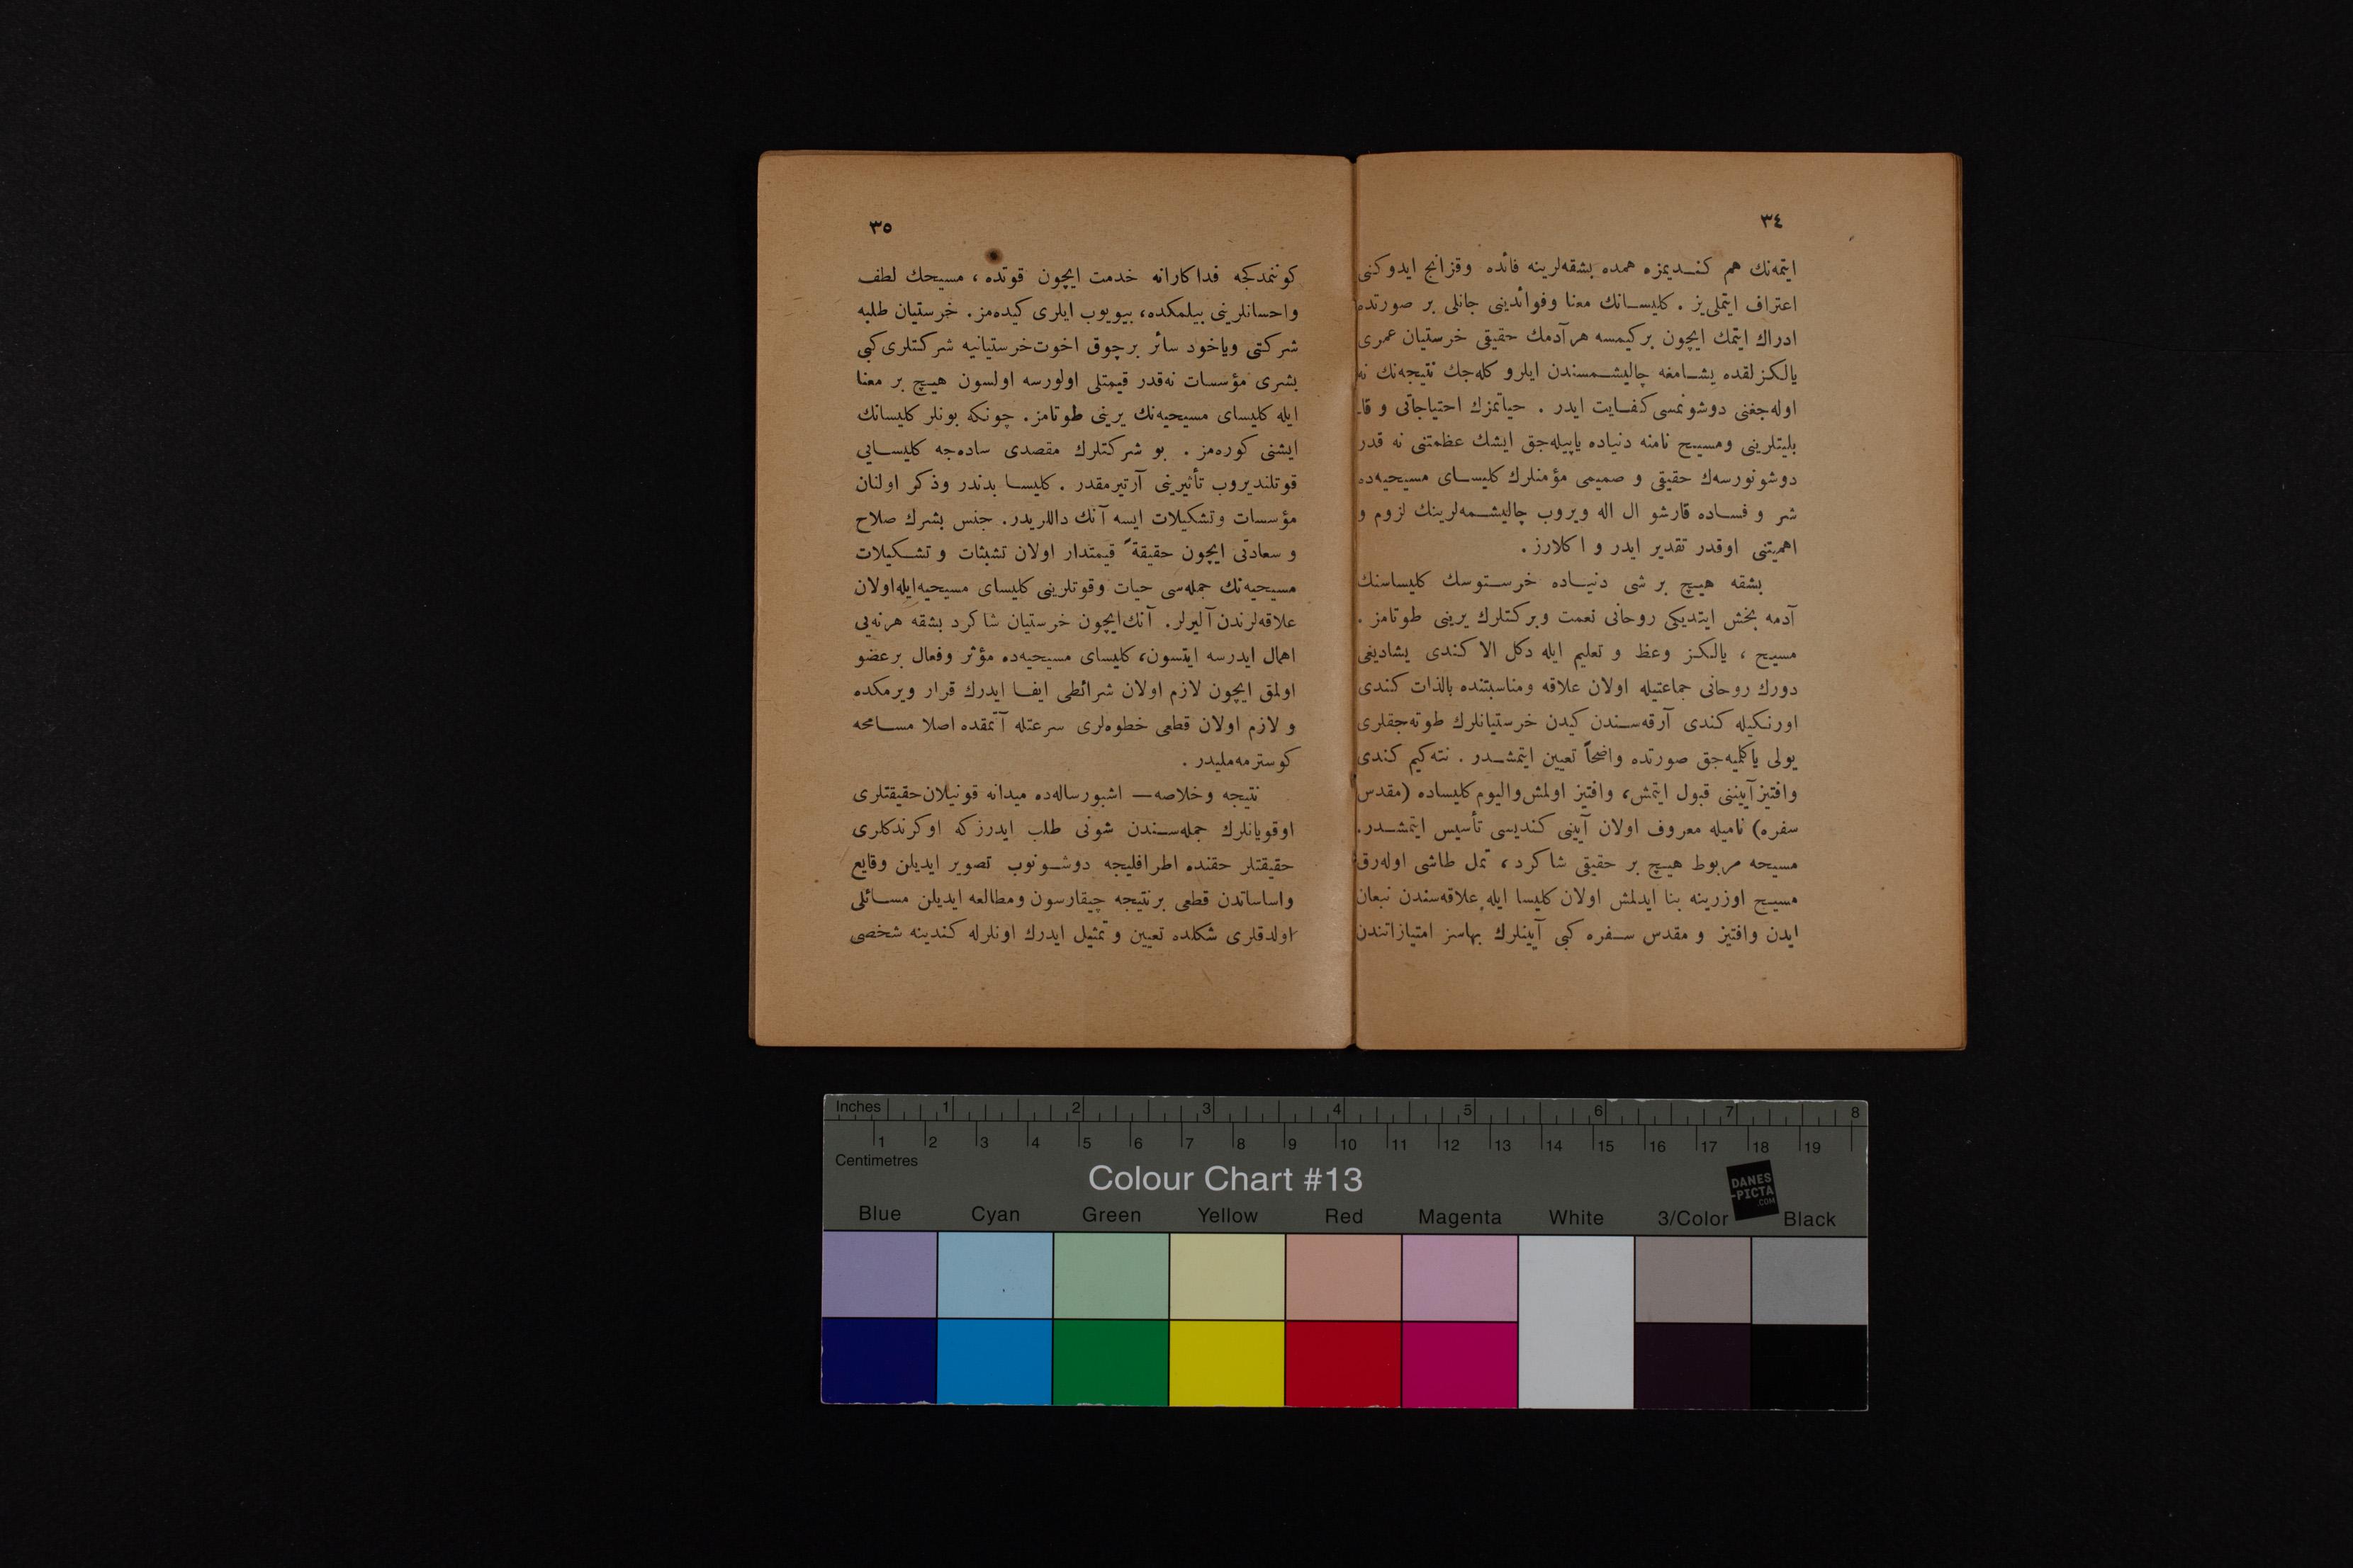 ٣٤
ایتمه‌نك هم كنـدیمزه همده بشقه‌لرینه فائده وقزانج ایدوكنی
اعتراف ایتملی‌یز . كلیسـانك معنا وفوائدینی جانلی بر صورتده
ادراك ایتمك ایچون بركیمسه هرآدمك حقیقی خرستیان عمری
یالكزلقده یشـامغه چالیشـمسندن ایلرو كله‌جك نتیجه‌نك نه
اوله‌جغنی دوشونمسی كفـایت ایدر . حیاتمزك احتیاجاتی و قا-
بلیتلرینی ومسیح نامنه دنیاده یاپیله‌جق ایشك عظمتنی نه قدر
دوشونورسه‌ك حقیقی و صمیمی مؤمنلرك كلیسـای مسیحیه‌ده
شر و فسـاده قارشو ال اله ویروب چالیشـمه‌لرینك لزوم و
اهمیتنی اوقدر تقدیر ایدر و اكلارز .
بشقه هیچ بر شی دنیـاده خرسـتوسك كلیساسنك
آدمه بخش ایتدیكی روحانی نعمت وبركتلرك یرینی طوتامز .
مسیح ، یالكـز وعظ و تعلیم ایله دكل الا كندی یشادیغی
دورك روحانی جماعتیله اولان علاقه ومناسبتنده بالذات كندی
اورنكیله كندی آرقه‌سـندن كیدن خرستیانلرك طوته‌جقلری
یولی یاكلمیه‌جق صورتده واضحاً تعیین ایتمشـدر . نته‌كیم كندی
وافتیز آییننی قبول ایتمش، وافتیز اولمش والیوم كلیساده (مقدس
سفره) نامیله معروف اولان آیینی كندیسی تأسیس ایتمشـدر.
مسیحه مربوط هیچ بر حقیقی شاكرد ، تمل طاشی اوله‌رق
مسیح اوزرینه بنا ایدلمش اولان كلیسا ایله علاقه‌سندن نبعان
ایدن وافتیز و مقدس سـفره كبی آیینلرك بهاسز امتیازاتندن
٣٥
كوننمدكجه فداكارانه خدمت ایچون قوتده ، مسیحك لطف
واحسانلرینی بیلمكده، بیویوب ایلری كیده‌مز. خرستیان طلبه
شركتی ویاخود سائر برچوق اخوت خرستیانیه شركتلری كبی
بشری مؤسسات نه‌قدر قیمتلی اولورسه اولسون هیچ بر معنا
ایله كلیسای مسیحیه‌نك یرینی طوتامز. چونكه بونلر كلیسانك
ایشنی كوره‌مز . بو شركتلرك مقصدی ساده‌جه كلیسـایی
قوتلندیروب تأثیرینی آرتیرمقدر . كلیسـا بدندر وذكر اولنان
مؤسسات وتشكیلات ایسه آنك داللریدر. جنس بشرك صلاح
و سعادتی ایچون حقیقةً قیمتدار اولان تشبثات و تشـكیلات
مسیحیه‌نك جمله‌سی حیات وقوتلرینی كلیسای مسیحیه ایله اولان
علاقه‌لرندن آلیرلر. آنك ایچون خرستیان شاكرد بشقه هرنه‌یی
اهمال ایدرسه ایتسون، كلیسای مسیحیه‌ده مؤثر وفعال برعضو
اولمق ایچون لازم اولان شرائطی ایفـا ایدرك قرار ویرمكده
و لازم اولان قطعی خطوه‌لری سرعتله آتمقده اصلا مسـامحه
كوسترمه‌ملیدر .
نتیجه وخلاصه— اشبورساله‌ده میدانه قونیلان حقیقتلری
اوقویانلرك جمله‌سـندن شونی طلب ایدرزكه اوكرندكلری
حقیقتلر حقنده اطرافلیجه دوشـونوب تصویر ایدیلن وقایع
واساساتدن قطعی برنتیجه چیقارسون ومطالعه ایدیلن مسـائلی
اولدقلری شكلده تعیین و تمثیل ایدرك اونلرله كندینه شخصی
Inches 1 2 3 4 5 6 7 8
1 2 3 4 5 6 7 8 9 10 11 12 13 14 15 16 17 18 19
Centimetres
Colour Chart #13
DANES
-PICTA
.COM
Blue Cyan Green Yellow Red Magenta White 3/Color Black